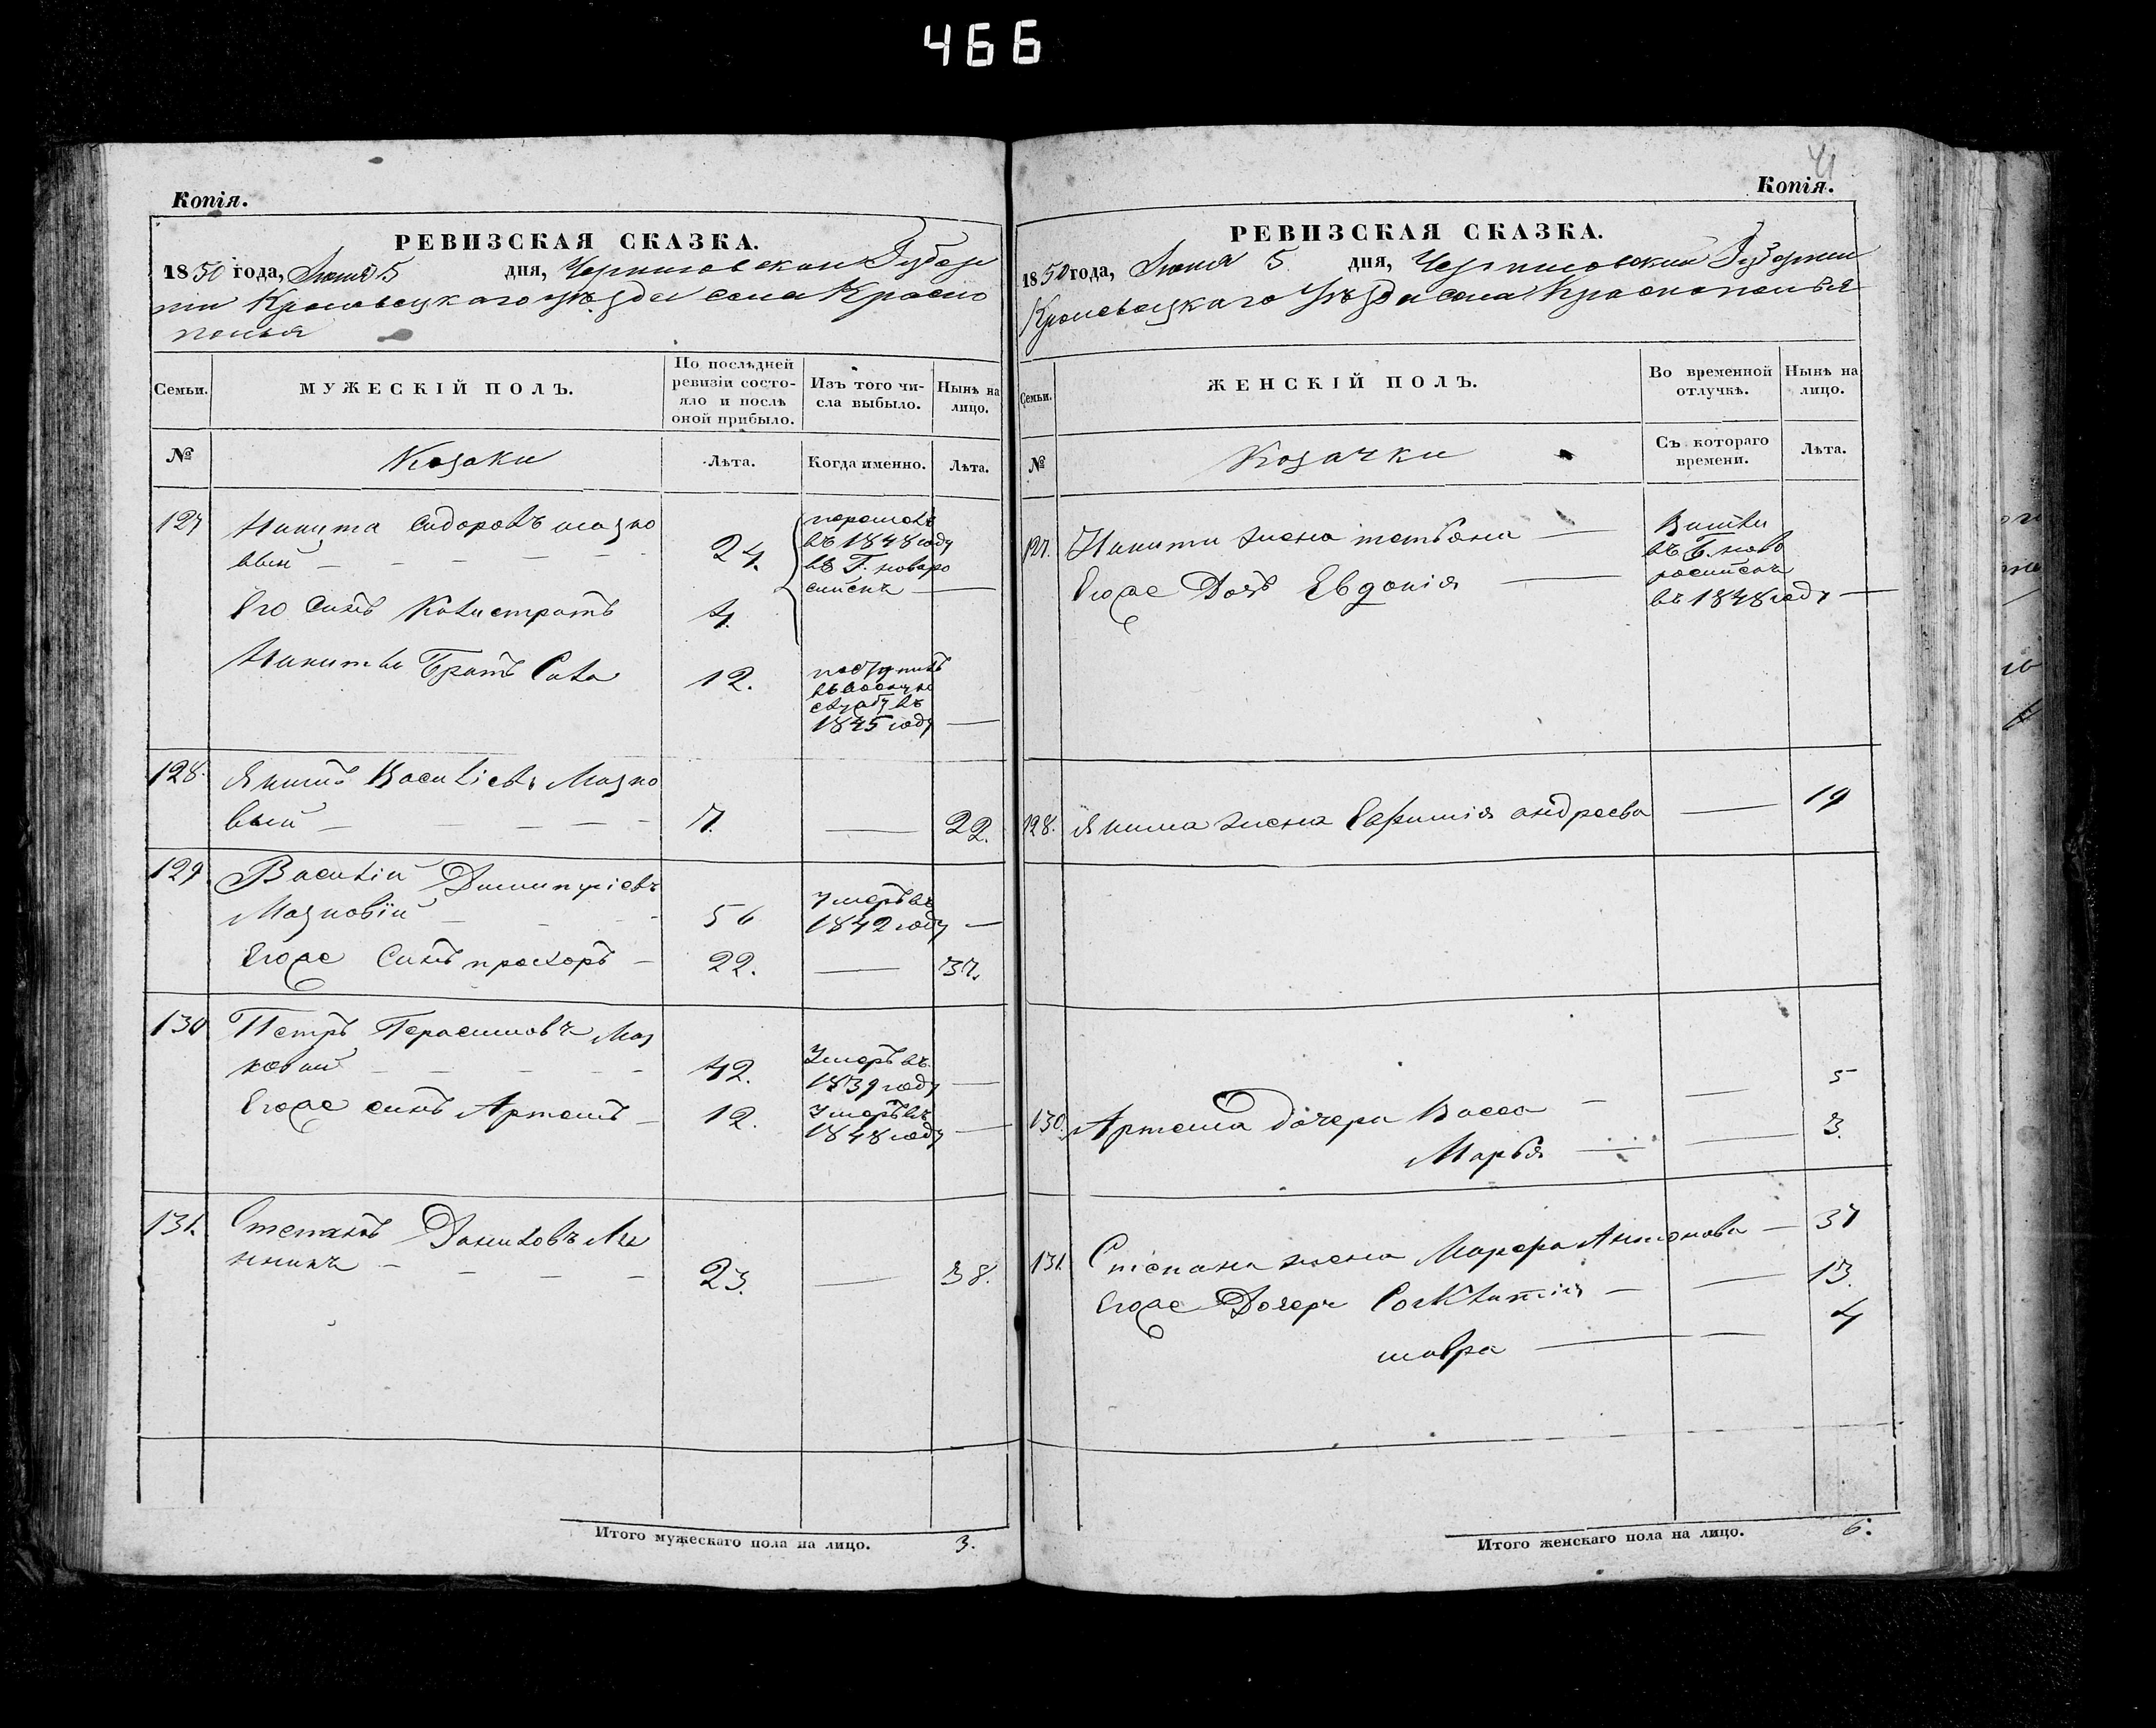 466
Копія.
РЕВИЗСКАЯ СКАЗКА.
1850 года, Июня 5 дня, Черниговской Губер
нии Кролевецкаго уѣзда села Красно
полья
Семьи.
МУЖЕСКІЙ ПОЛЪ.
По послѣдней
ревизіи состо-
яло и послѣ
оной прибыло.
Изъ того чи-
сла выбыло.
Нынѣ на
лицо.
№
Козаки
Лѣта.
Когда именно.
Лѣта.
127 Никита Сидоровъ
24.
въ 1848 году
Его Синъ Калистратъ 4.
Никиты Братъ Сава 12.
1845 году —
128. Якимъ Василіевъ Мазно
вый — 7. — 22.
129 Василій Димитріевъ
Мазновій — 56 умеръ въ
1842 году —
Егоже Синъ прохоръ — 22. — 37.
130 Петръ Герасимовъ Маз
новий — 42. Умеръ въ
1839 году —
Егоже синъ Артемъ — 12. Умеръ въ
1848 году —
131. Степанъ Даниловъ
23. — 38.
Итого мужескаго пола на лицо. 3.
41
Копія.
РЕВИЗСКАЯ СКАЗКА.
1850 года, Июня 5 дня, Черниговской Губернии
Кролевецкаго Уѣзда села Краснополья
Семьи.
ЖЕНСКІЙ ПОЛЪ.
Во временной
отлучкѣ.
Нынѣ на
лицо.
№
Козачки
Съ котораго
времени.
Лѣта.
127. Никиты жена татьяна —
Егоже Дочь Евдокія —
въ 1848 году —
128. Якима жена Евфимія андреева — 19
130. Артема дочери Васса — — 5
Марья — — 3.
131. Степана жена Марфа Антонова — 37
Егоже Дочери — — 13.
мавра — — 4
Итого женскаго пола на лицо. 6.